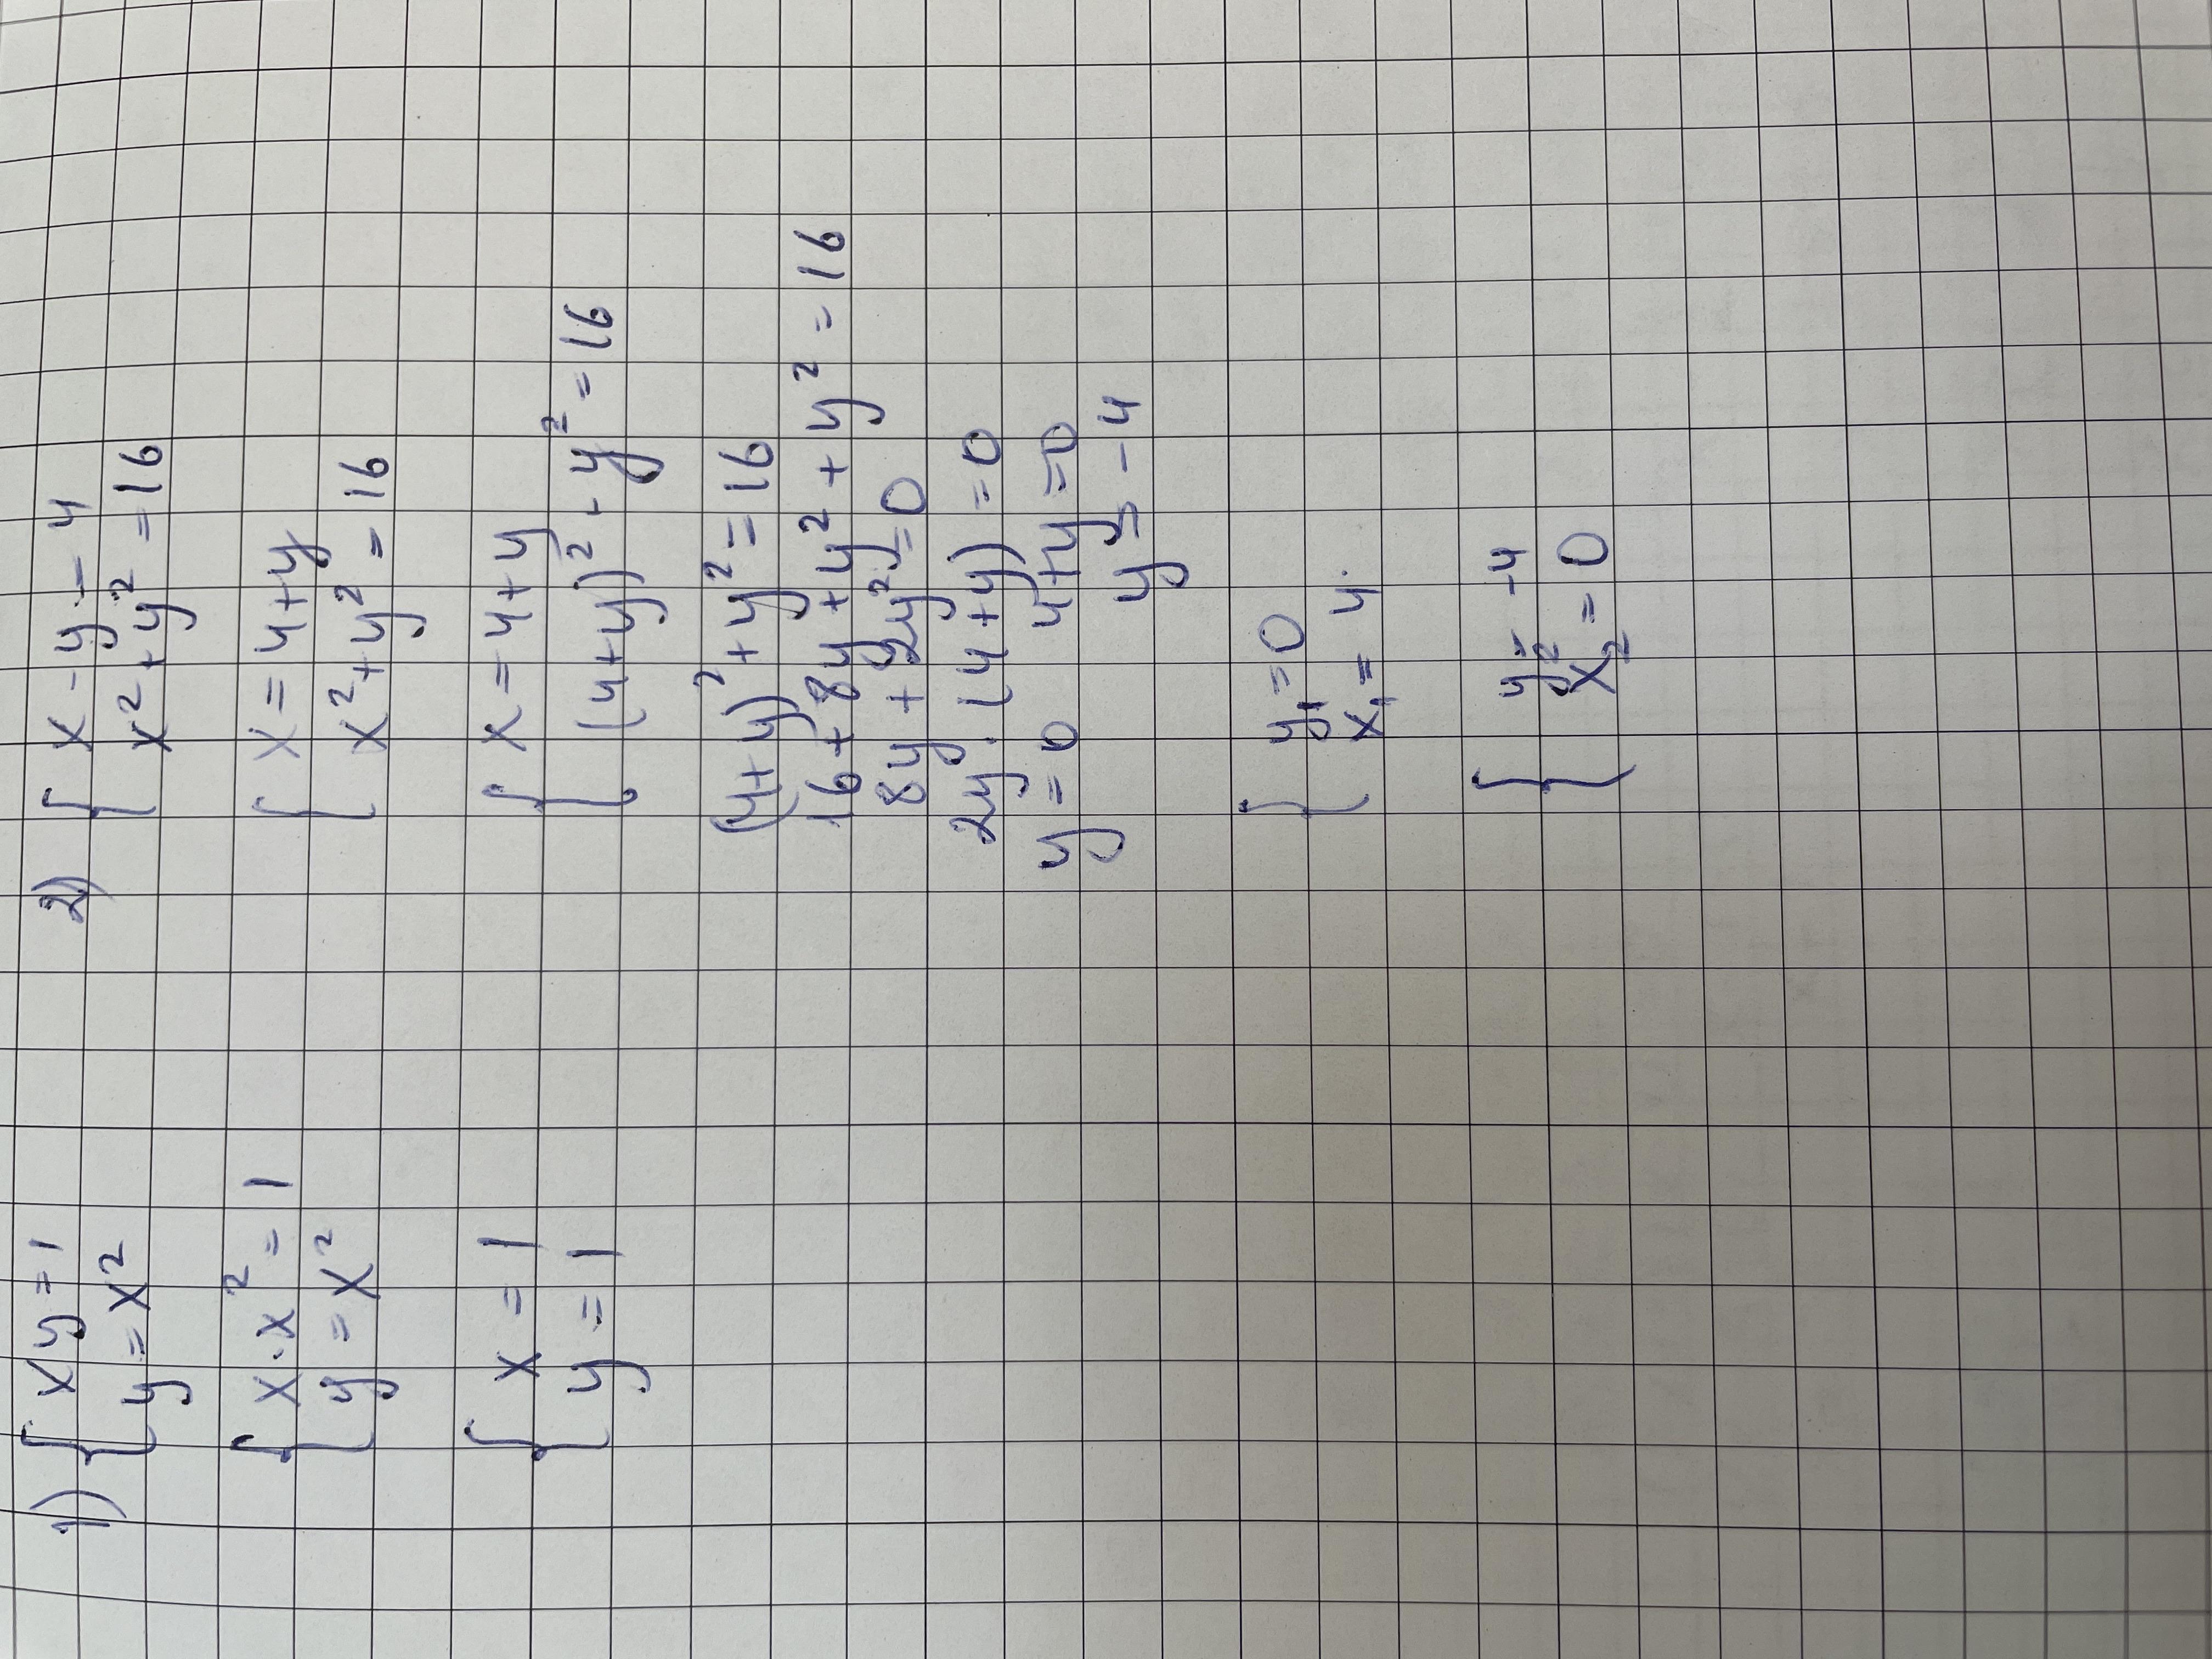 1) { xy = 1
y = x²
{ x · x² = 1
y = x²
{ x = 1
y = 1
2) { x - y = 4
x² + y² = 16
{ x = 4 + y
x² + y² = 16
{ x = 4 + y
(4 + y)² + y² = 16
(4 + y)² + y² = 16
16 + 8y + y² + y² = 16
8y + 2y² = 0
2y · (4 + y) = 0
y = 0 4 + y = 0
y = -4
{ y₁ = 0
x₁ = 4.
{ y₂ = -4
x₂ = 0